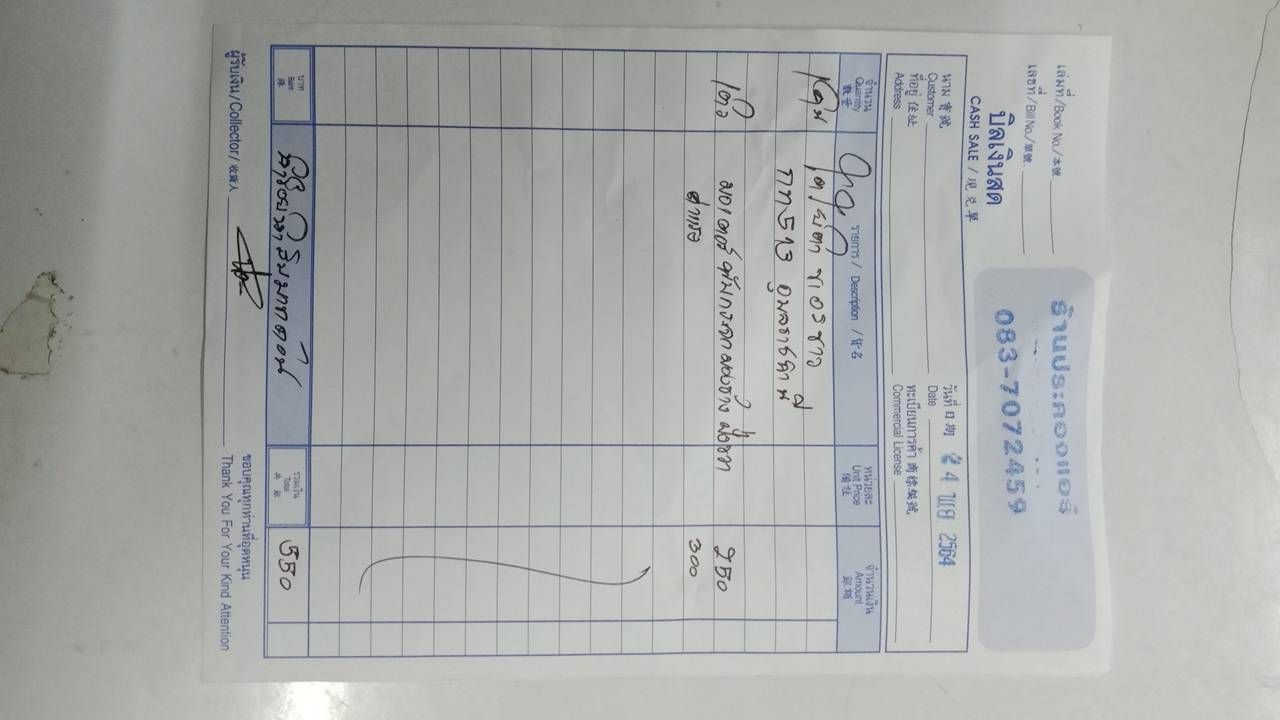 ร้านประคองแอร์
083-7072459
เล่มที่/Book No./本號
เลขที่/Bill No./單號
บิลเงินสด
CASH SALE / 現兌單
นาม 寶號
Customer
ที่อยู่ 住址
Address
วันที่ 日期 24 เมย 2564
Date
ทะเบียนการค้า 商標編號
Commercial License
จำนวน Quantity 數量
รายการ / Description / 貨名
หน่วยละ Unit Price 備註
จำนวนเงิน Amount 銀額
โตโยต้า ขาว
กท513 อุบลราชธานี
มอเตอร์พัมกระจกมองข้าง ฝั่งขวา 250
ค่าแรง 300
บาท Baht 銖
ห้าร้อยห้าสิบบาทถ้วน
รวมเงิน Total 共銀 550
ผู้รับเงิน/Collector/收銀人
ขอบคุณทุกท่านที่อุดหนุน
Thank You For Your Kind Attention